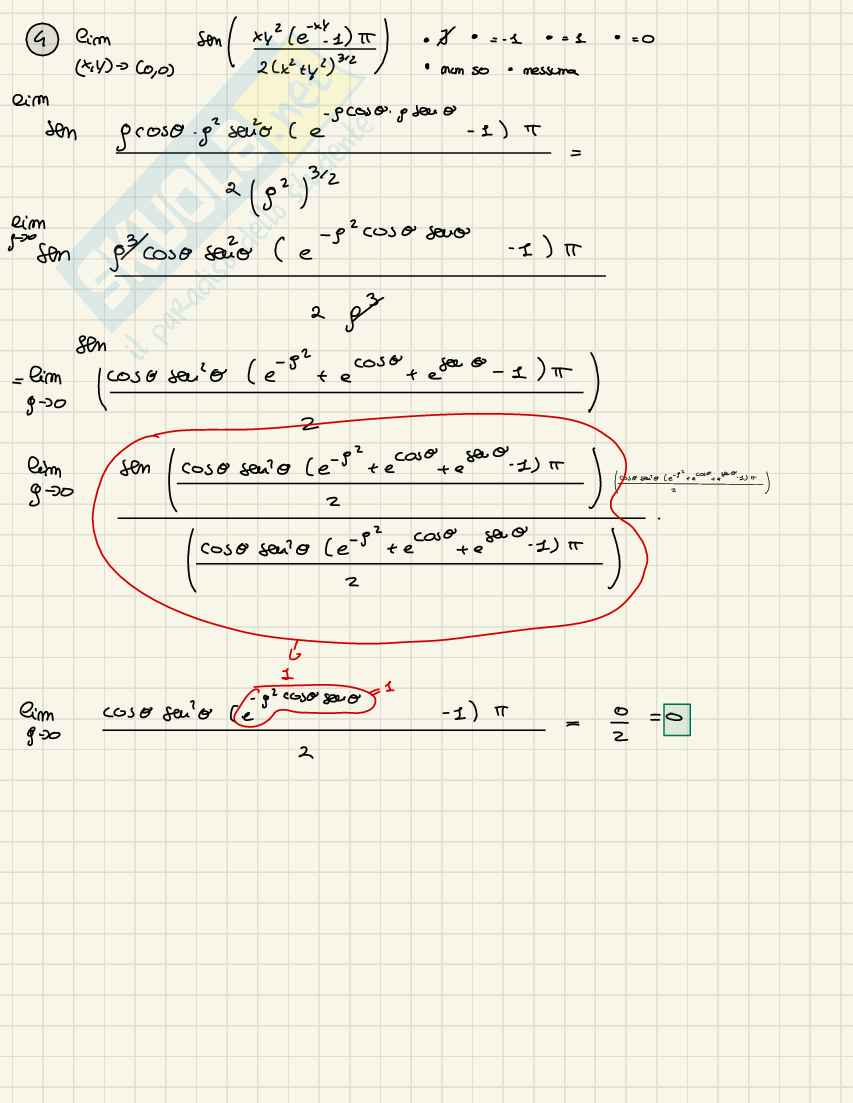 4 lim (x,y)→(0,0) sen( xy²(e^{-xy}-1)π / 2(x²+y²)^{3/2} ) • ∄ • =-1 • =1 • =0
• non so • nessuna
lim sen ρcosθ·ρ²sen²θ (e^{-ρcosθ·ρsenθ} -1) π / 2(ρ²)^{3/2} =
lim ρ→0 sen ρ³cosθ sen²θ (e^{-ρ²cosθ senθ} -1) π / 2 ρ³
= lim ρ→0 sen (cosθ sen²θ (e^{-ρ²} + e^{cosθ} + e^{senθ} -1) π / 2)
lim ρ→0 sen (cosθ sen²θ (e^{-ρ²} + e^{cosθ} + e^{senθ} -1) π / 2) / (cosθ sen²θ (e^{-ρ²} + e^{cosθ} + e^{senθ} -1) π / 2) · (cosθ sen²θ (e^{-ρ²} + e^{cosθ} + e^{senθ} -1) π / 2)
1
lim ρ→0 cosθ sen²θ (e^{-ρ²cosθ senθ} =1 -1) π / 2 = 0/2 = 0
SKUOLA.net
il paradiso dello studente